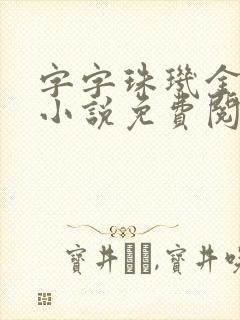 字字珠璣全
小說免費閱
寶井,寶井